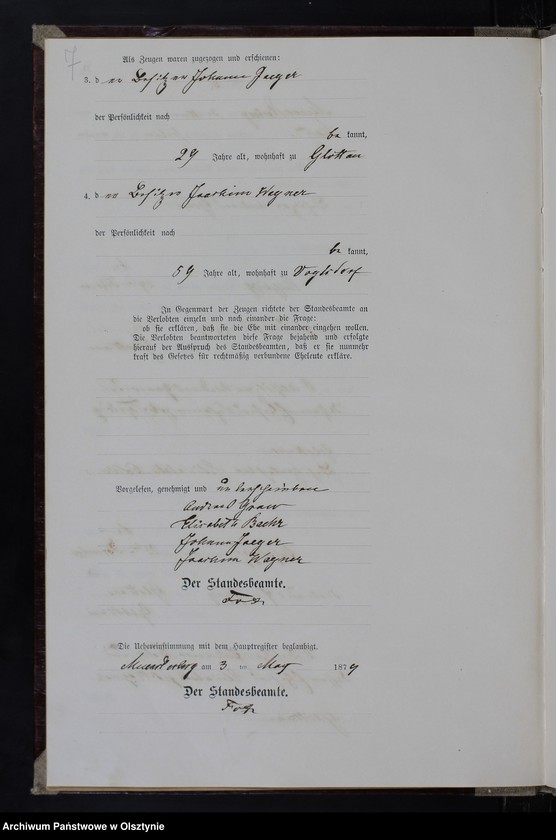 7
Als Zeugen waren zugezogen und erschienen:
3. d er Besitzer Johann Jaeger
der Persönlichkeit nach
be kannt,
29 Jahre alt, wohnhaft zu Glottau
4. d er Besitzer Joachim Wagner
der Persönlichkeit nach
be kannt,
59 Jahre alt, wohnhaft zu Voigtsdorf
In Gegenwart der Zeugen richtete der Standesbeamte an
die Verlobten einzeln und nach einander die Frage:
ob sie erklären, daß sie die Ehe mit einander eingehen wollen.
Die Verlobten beantworteten diese Frage bejahend und erfolgte
hierauf der Ausspruch des Standesbeamten, daß er sie nunmehr
kraft des Gesetzes für rechtmäßig verbundene Eheleute erkläre.
Vorgelesen, genehmigt und unterschrieben
Andreas Graw
Elisabeth Baehr
Johann Jaeger
Joachim Wagner
Der Standesbeamte.
Die Uebereinstimmung mit dem Hauptregister beglaubigt.
am 3. ten May 1879
Der Standesbeamte.
Archiwum Państwowe w Olsztynie